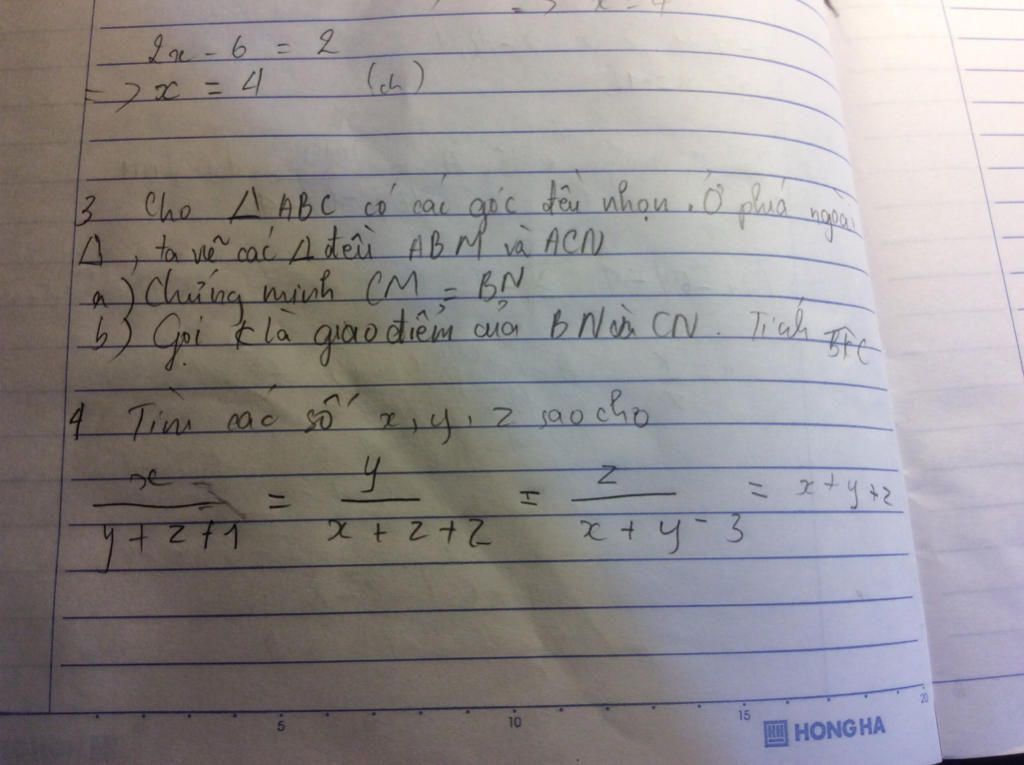 => x = 4
2x - 6 = 2
=> x = 4 (ch)
3 Cho Δ ABC có các góc đều nhọn. Ở phiá ngoài
Δ, ta vẽ các Δ đều ABM và ACN
a) Chứng minh CM = BN
b) Gọi K là giao điểm của BN và CN. Tính
4 Tìm các số x, y, z sao cho
x / y + z + 1 = y / x + z + 2 = z / x + y - 3 = x + y + z
5 10 15 20
HONG HA